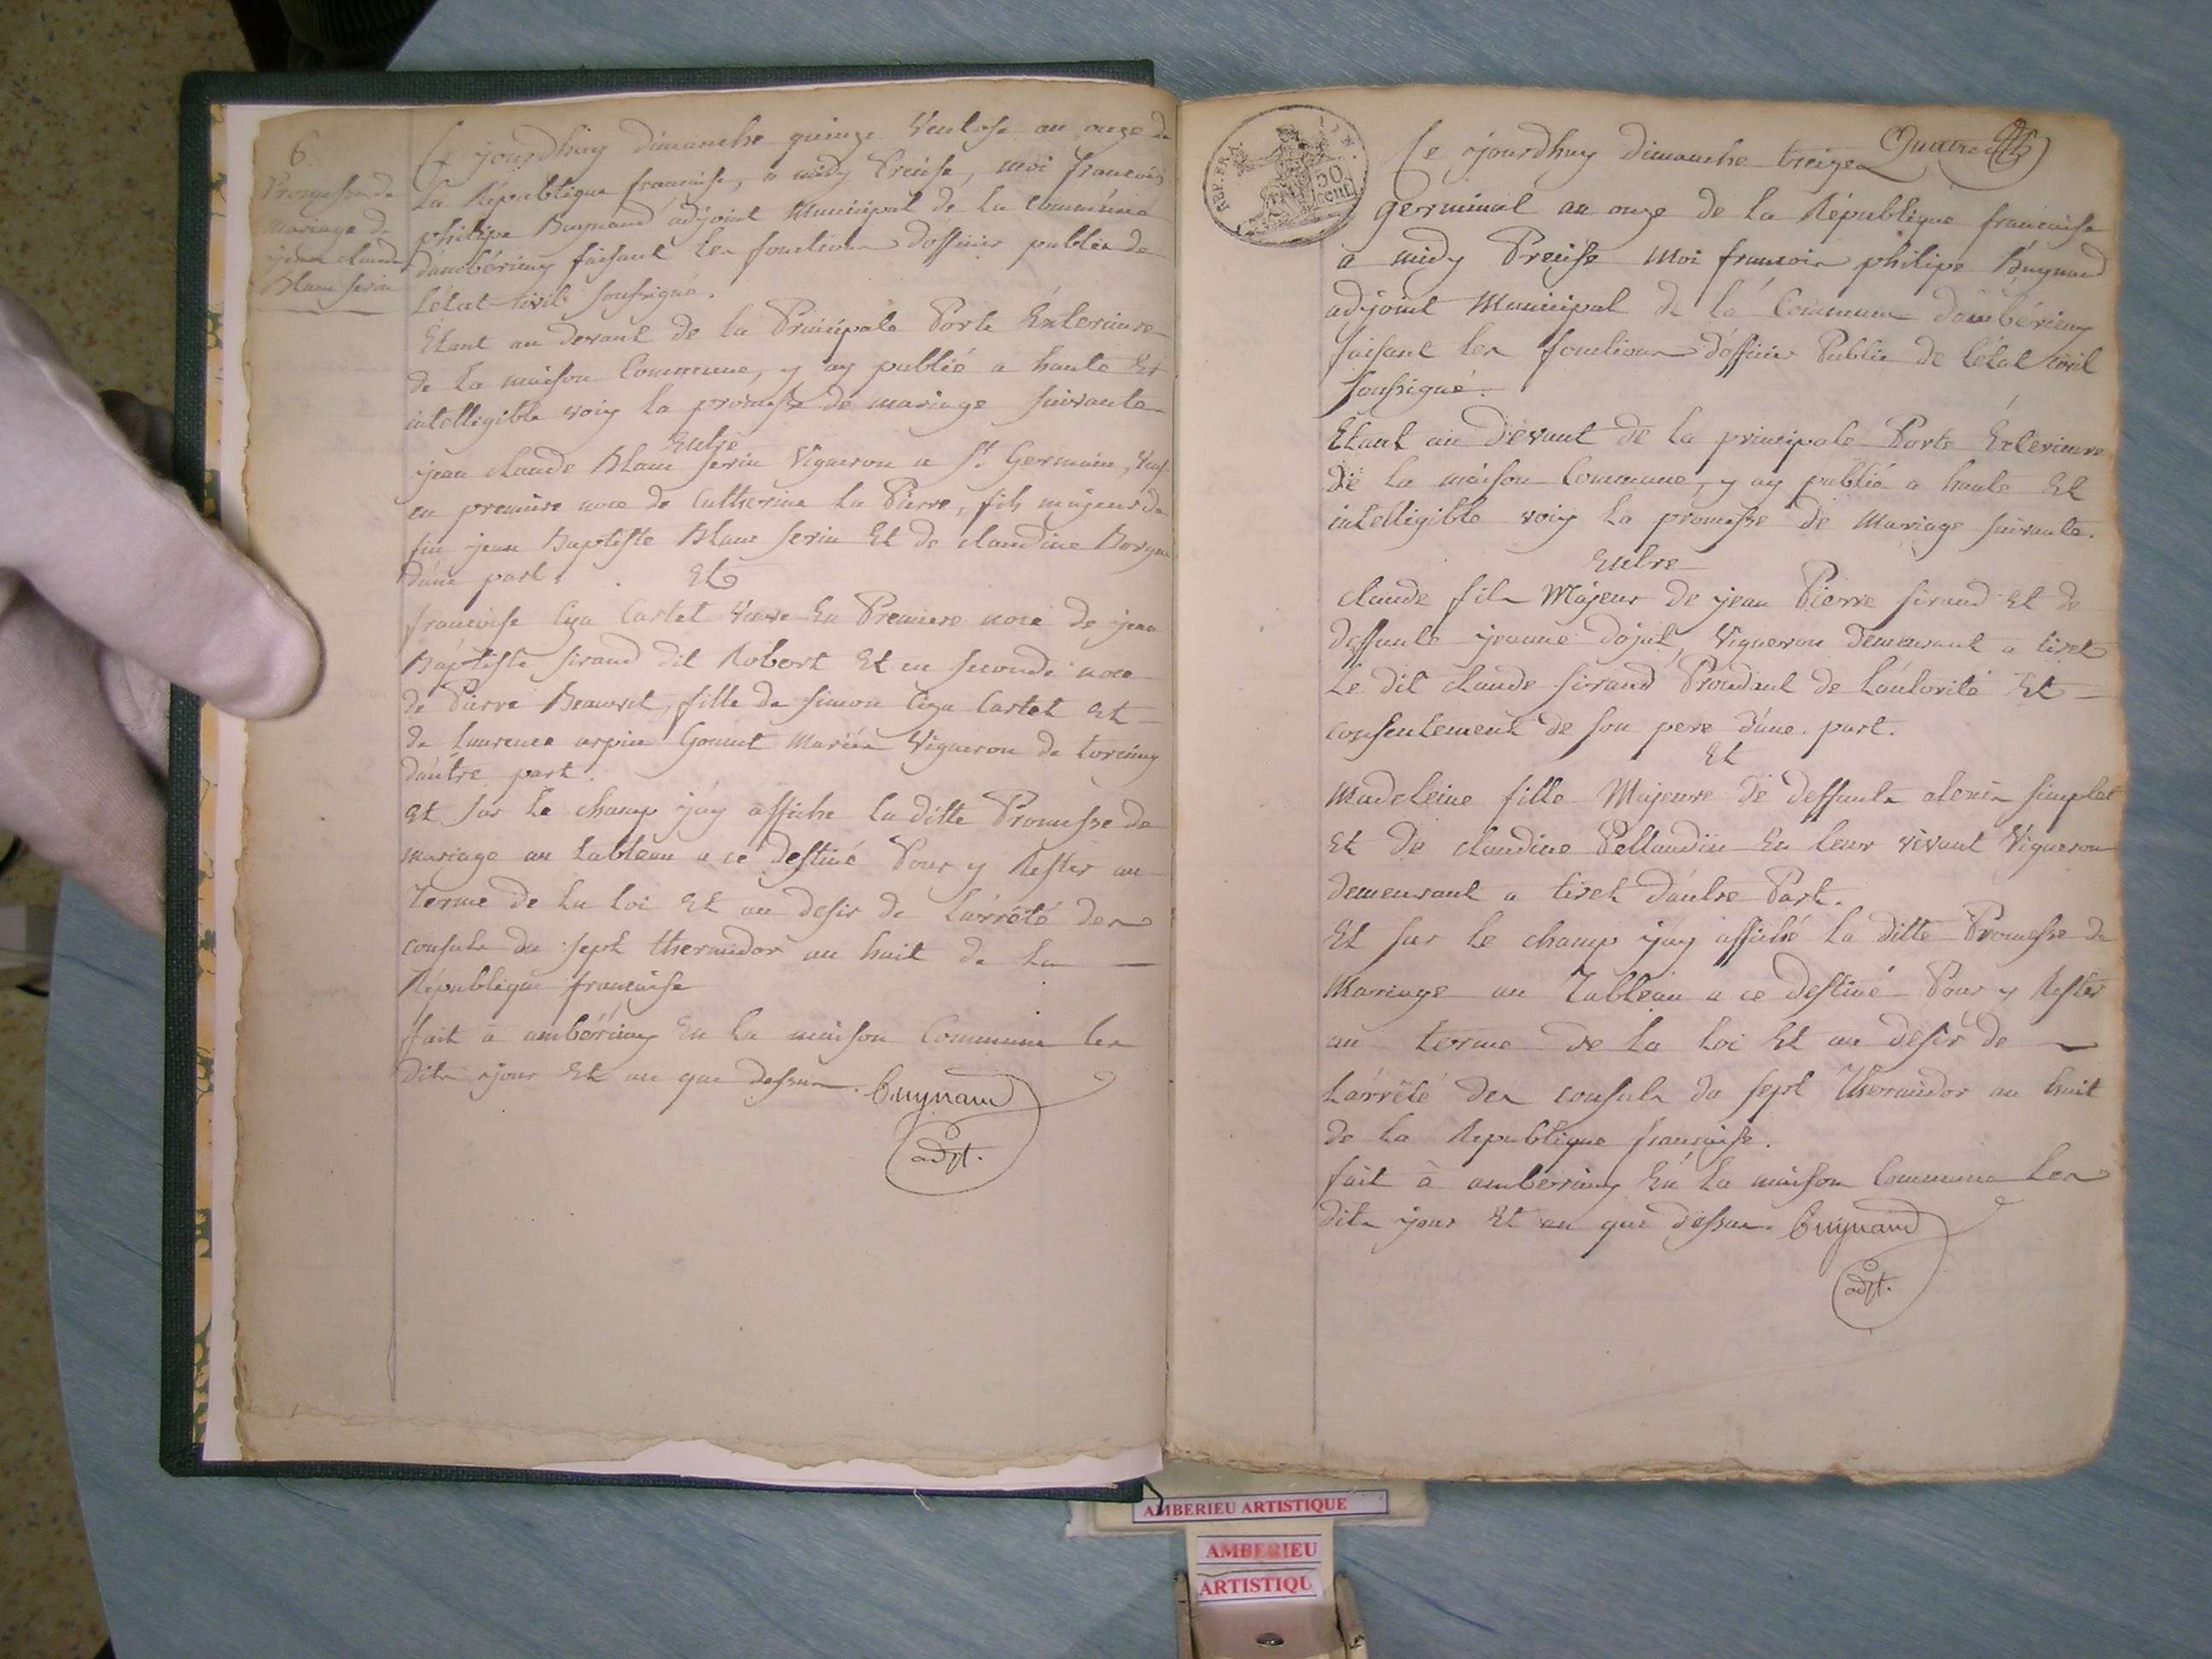 6.
Promesse de
mariage de
jean claude
Blanc serin
Ce jourdhuy dimanche quinze Ventose an onze de
La République francaise, a midy Precise, moi francois
philipe Buynand adjoint Municipal de La Commune
d'ambérieuy faisant les fonctions d'officier public de
L'état civil soussigné.
Etant au devant de la Principale Porte Exterieure
de La maison Commune, y ay publié a haute Et
intelligible voix La promesse de mariage suivante
Entre
jean claude Blanc serin Vigneron a St Germain, veuf
en premiere noce de Catherine La Pierre, fils majeur de
feu jean Baptiste Blanc serin Et de claudine
d'une part. Et
francoise Castet veuve En Premiere noce de jean
Baptiste sirand dit Robert Et en seconde noce
de Pierre fille de simon Castet Et
de Laurence Vigneron de torcieuy
d'autre part.
Et sur Le champ j'ay affiché La ditte Promesse de
mariage au tableau a ce destiné Pour y Rester au
Terme de La Loi Et au desir de L'arrêté des
consuls du sept thermidor an huit de La
République francaise
fait à ambérieuy En La maison Commune les
dits jour Et an que dessus. Buynand
adjt.
REP. FRA.
50
cent
Quatre
Ce jourdhuy dimanche treize
Germinal an onze de La République francaise
a midy Precise Moi francois philipe Buynand
adjoint Municipal de La Commune d'ambérieuy
faisant les fonctions d'officier Public de L'état civil
soussigné.
Etant au devant de La principale Porte Exterieure
de La maison Commune, y ay publié a haute Et
intelligible voix La promesse de Mariage suivante.
Entre
claude fils Majeur de jean Pierre sirand Et de
deffunte jeanne dojat, Vigneron demeurant a tiret
Le dit claude sirand de L'autorité Et
consentement de son pere d'une part.
Et
Madeleine fille Majeure de deffunts alexis simplet
Et de claudine En leur vivant Vigneron
demeurant a tiret d'autre Part.
Et sur le champ j'ay affiché La ditte Promesse de
Mariage au Tableau a ce destiné Pour y Rester
au terme de La Loi Et au desir de
L'arrêté des consuls du sept Thermidor an huit
de La République francaise.
fait à ambérieuy En La maison Commune Les
dits jour Et an que dessus. Buynand
adjt.
AMBERIEU ARTISTIQUE
AMBERIEU
ARTISTIQU